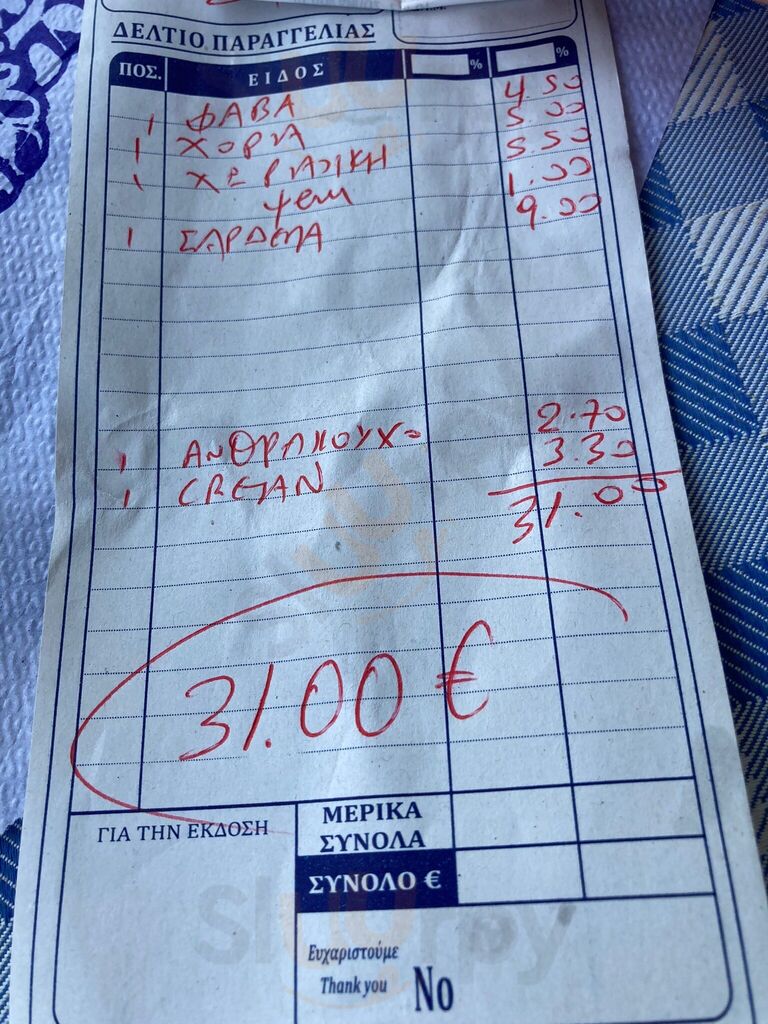 ΔΕΛΤΙΟ ΠΑΡΑΓΓΕΛΙΑΣ
ΠΟΣ. ΕΙΔΟΣ % %
1 ΦΑΒΑ 4.50
1 ΧΟΡΤΑ 5.00
1 ΧΩΡΙΑΤΙΚΗ 5.50
ψωμι 1.00
1 ΣΑΡΔΕΛΑ 9.00
1 ΑΝΘΡΑΚΟΥΧΟ 2.70
1 CRETAN 3.30
31.00
31.00 €
ΓΙΑ ΤΗΝ ΕΚΔΟΣΗ
ΜΕΡΙΚΑ
ΣΥΝΟΛΑ
ΣΥΝΟΛΟ €
Ευχαριστούμε
Thank you No
Sluurpy